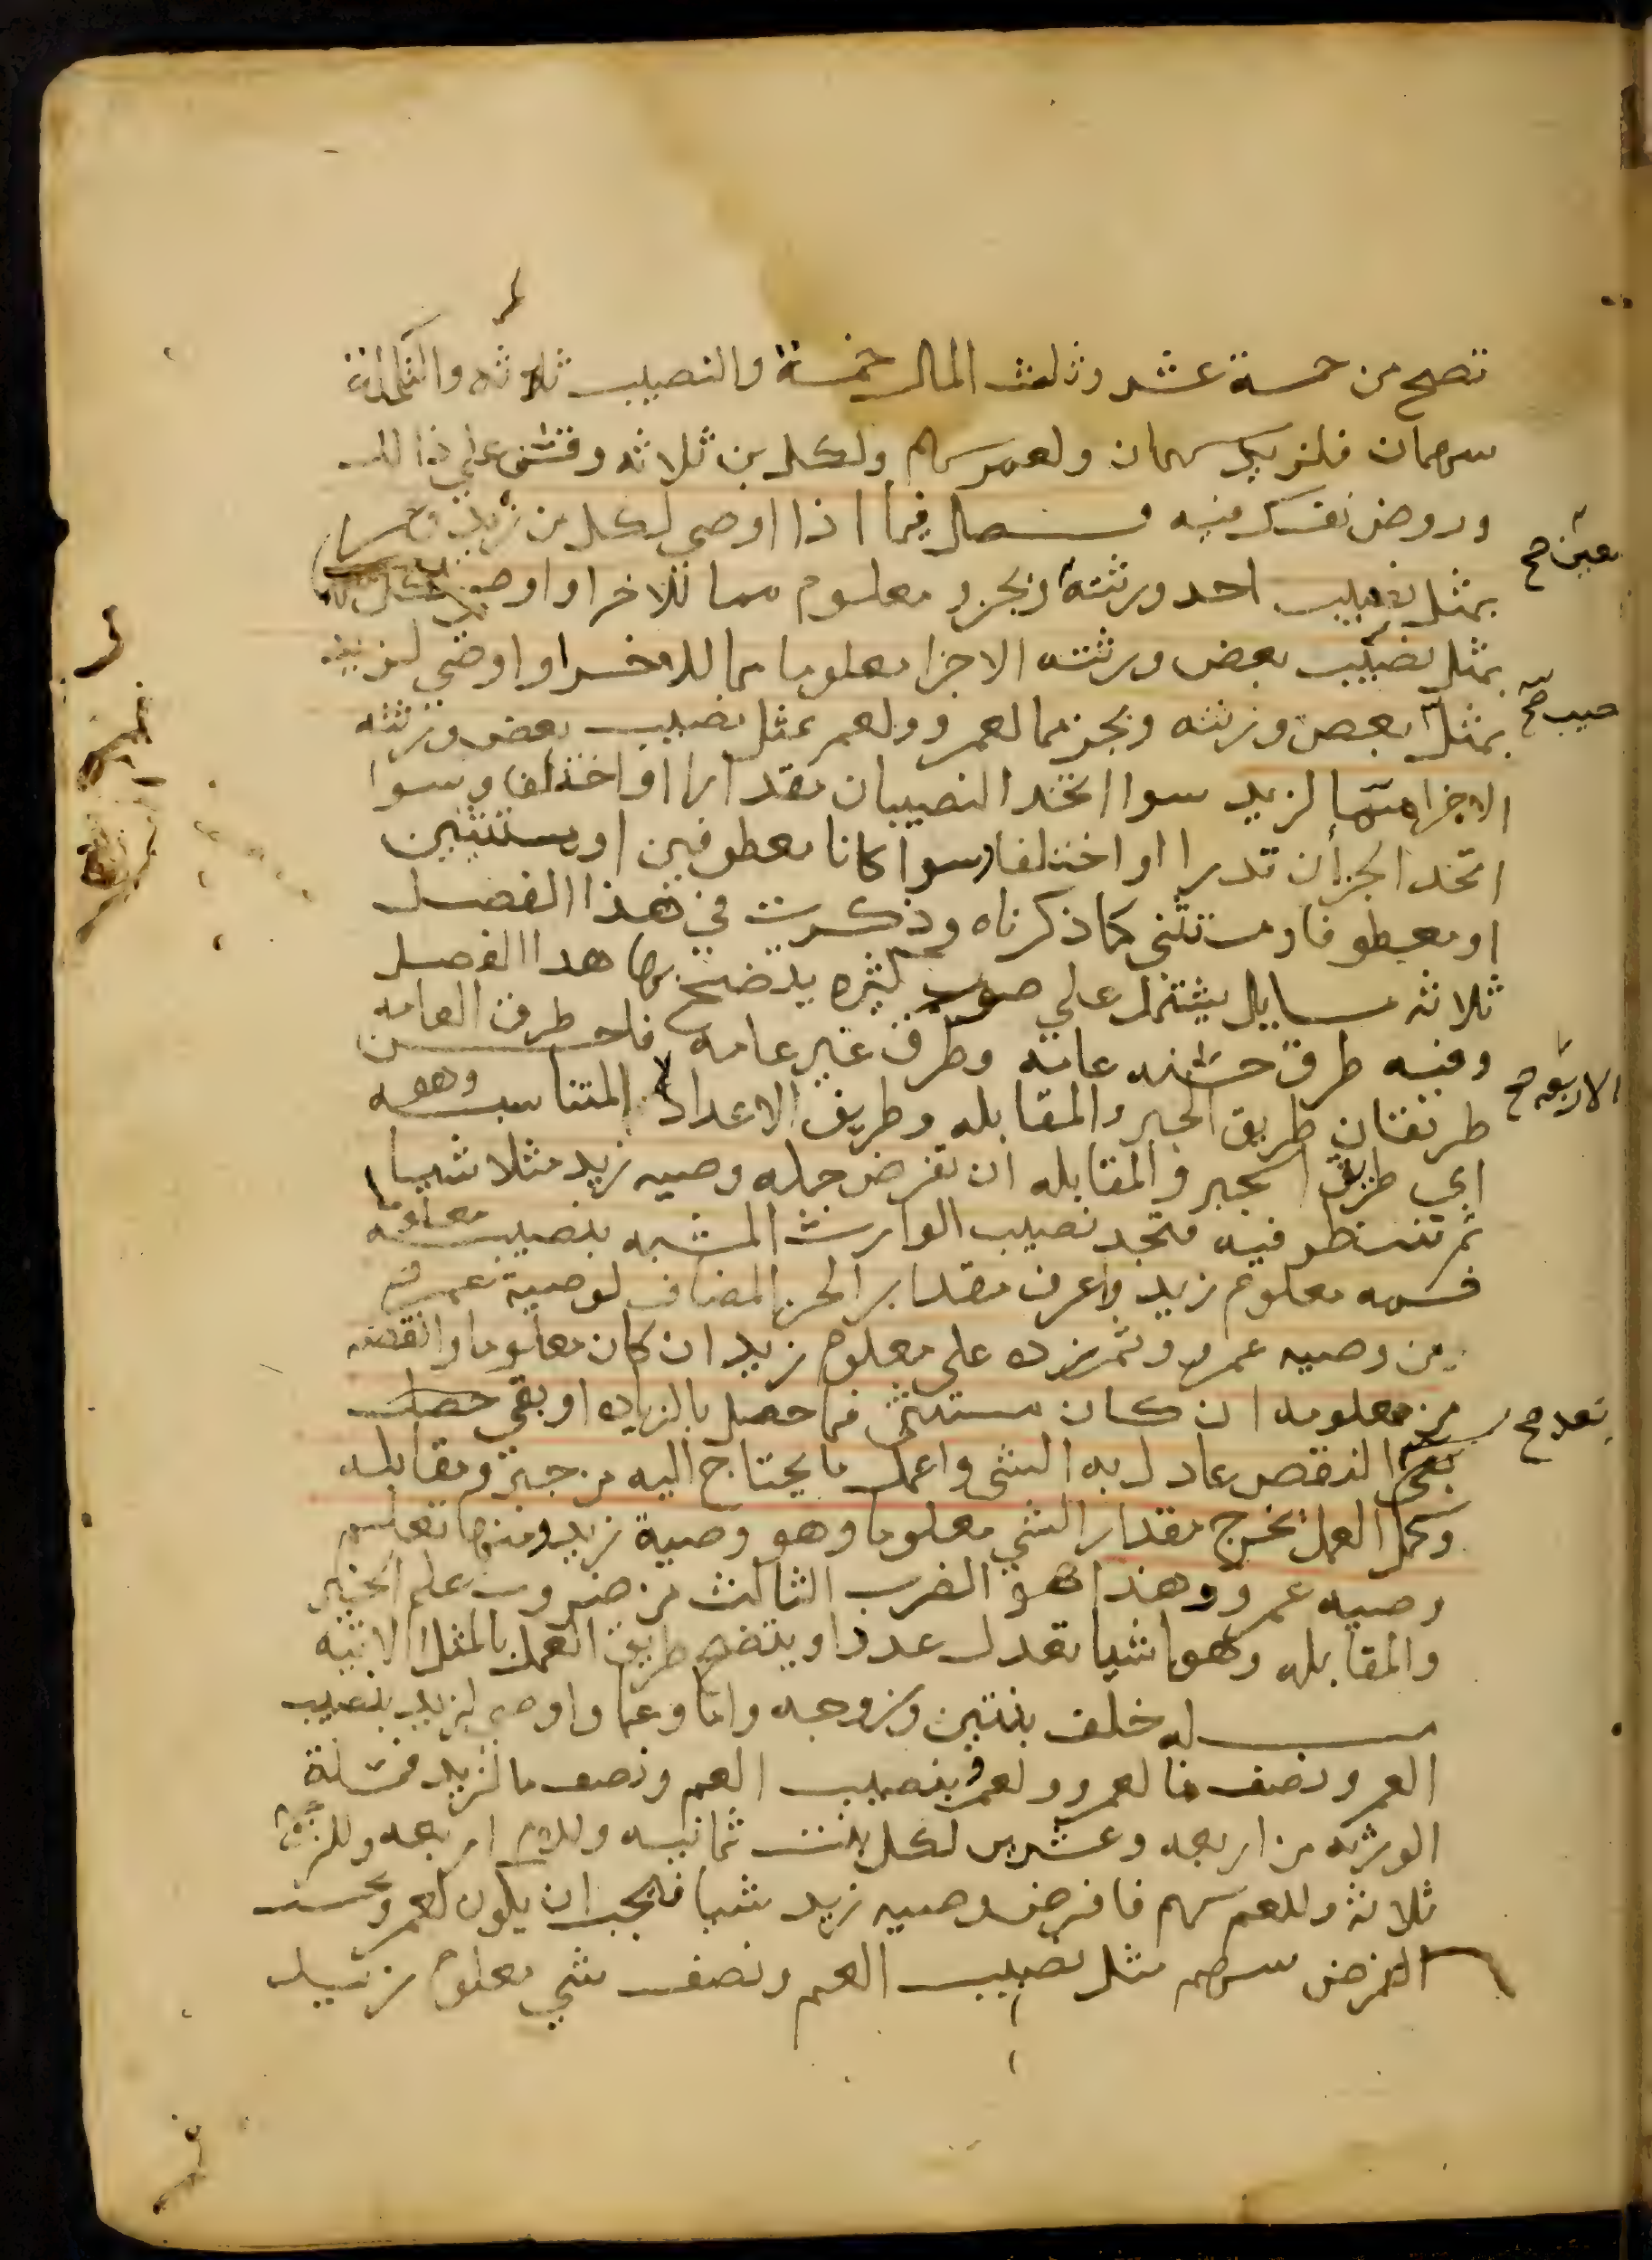 تصح من خمسة عشر وثلث المال خمسة والنصيب ثلاثه والتكملة
سهمان فلزيد سهمان ولعمر سهم ولكل بن ثلاثه وقس علي ذالك
وروض نفسك فيه فصل فيما اذا اوصي لكل من زيد وعمر
بمثل نصيب احد ورثته وبجزو معلوم مما للاخر او اوصي لكل
معين صح
بمثل نصيب بعض ورثته الاجزا معلوما مما للاخر او اوصي لزيد
بمثل بعض ورثته وبجز مما لعمرو ولعمر بمثل نصيب بعض ورثته
صيب صح
الاجزا مما لزيد سوا اتحد النصيبان مقدارا او اختلفا وسوا
اتحد الجزأن قدرا او اختلفا وسوا كانا معطوفين او مستثنيين
او معطوفا ومستثني كما ذكرناه وذكرت في هذا الفصل
ثلاثه مسايل يشتمل علي صور كثيره يتضح بها هدا الفصل
وفيه طرق حسنه عامه وطرق غير عامه فاحسن طرق العامه
طريقتان طريق الجبر والمقابله وطريق الاعداد المتناسبه وهو
الاربعه صح
اي طريق الجبر والمقابله ان تفرض جمله وصيه زيد مثلا شيا
ثم تنظر فيه فتجد نصيب الوارث المشبه بنصيبه معلوما
فسمه معلوم زيد واعرف مقدار الجز المضاف لوصية عمر
من وصيه عمرو وثم زده علي معلوم زيد ان كان معلوما وانقصه
من معلومه ان كان مستثني فما حصل بالزياده او بقي
بعد صح
النقص عادل به الشي واعمل ما يحتاج اليه من جبر ومقابله
وكمل العمل يخرج مقدار الشي معلوما وهو وصية زيد ومنها تعلم
وصيه عمرو وهذا هو الضرب الثالث من ضروب علم الجبر
والمقابله وهو اشيا تعدل عددا ويتضح طريق العمل بالمثل الاتيه
مسله خلف بنتين وزوجه واما وعما واوصي لزيد بنصيب
العم ونصف ما لعمرو ولعمر بنصيب العم ونصف ما لزيد فمسلة
الورثه من اربعه وعشرين لكل بنت ثمانيه وللام اربعه وللزوجة
ثلاثه وللعم سهم فافرض وصيه زيد شيا فيجب ان يكون لعمرو بحسب
الفرض سهم مثل نصيب العم ونصف شي معلوم زيد